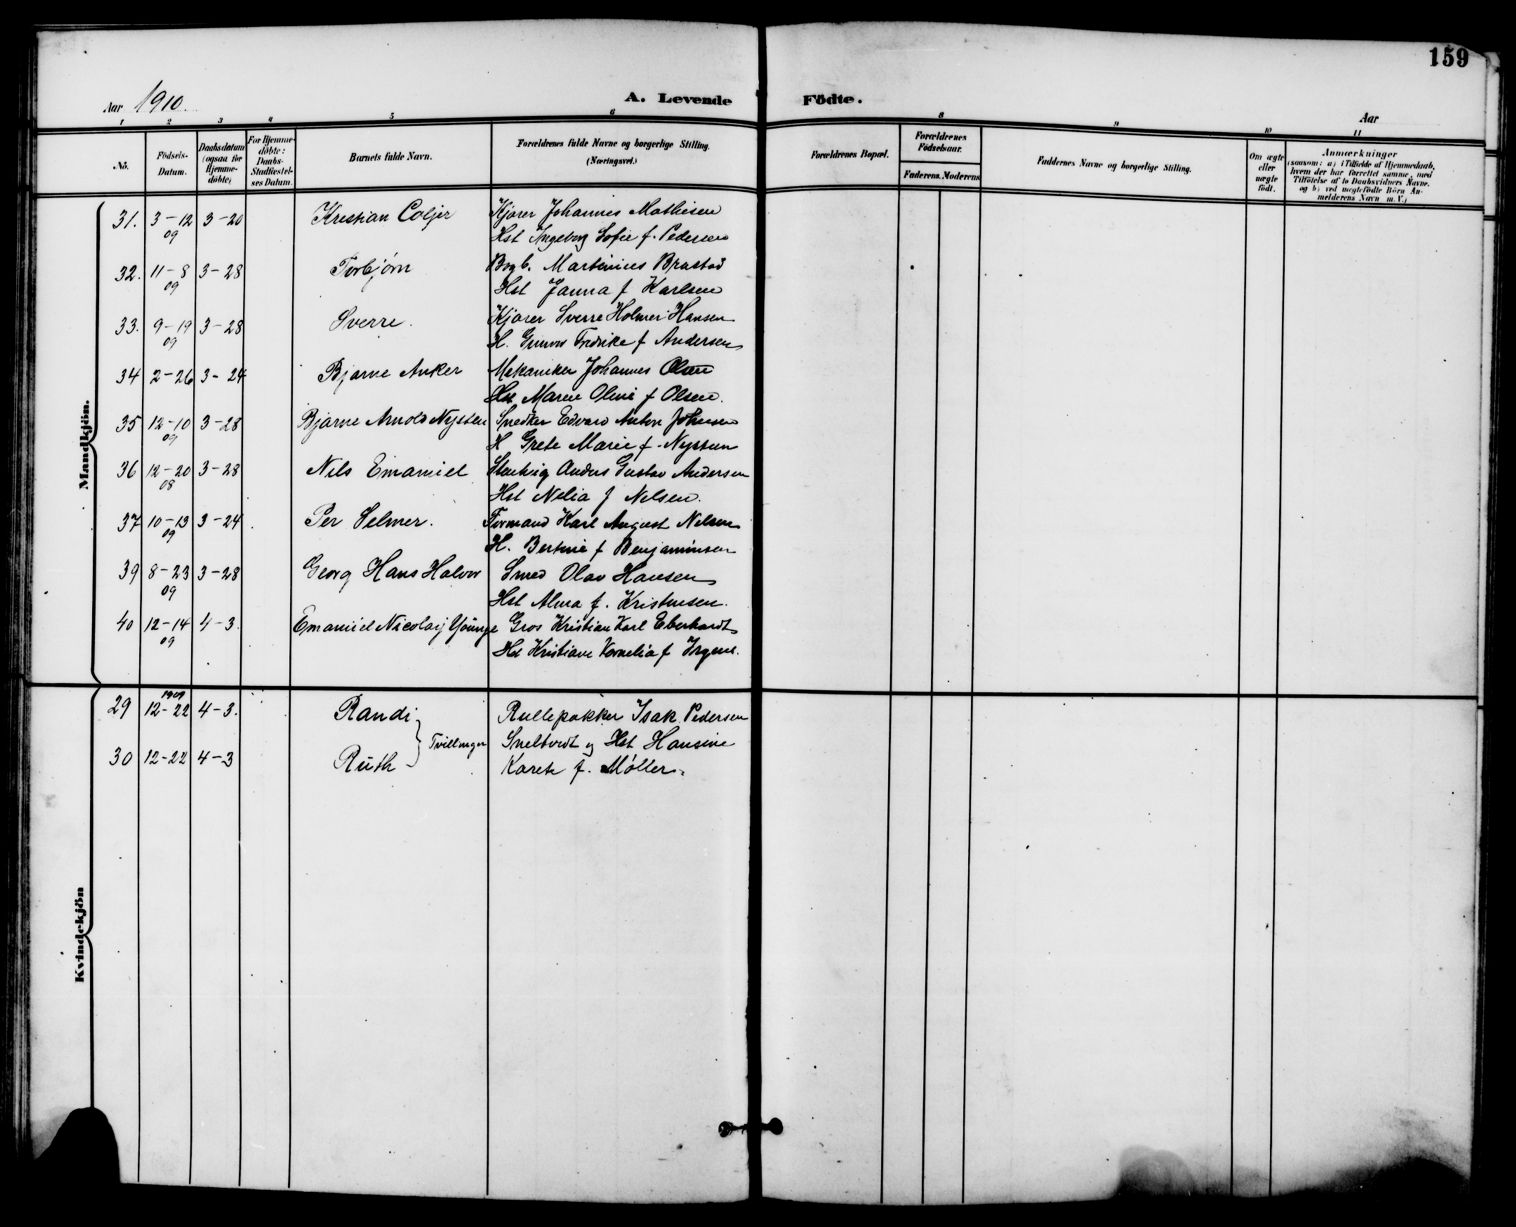 159
Aar 1910.
A. Levende Födte.
Aar
1 2 3 4 5 6 8 9 10 11
No.
Födsels-Datum.
Daabsdatum (ogsaa för Hjemmedöbte)
For Hjemmedöbte: Daabs-Stadfæstelses Datum.
Barnets fulde Navn.
Forældrenes fulde Navne og borgerlige Stilling. (Næringsvei.)
Forældrenes Bopæl.
Forældrenes Födselsaar.
Faderens. Moderens
Faddernes Navne og borgerlige Stilling.
Om ægte eller uægte födt.
Anmærkninger (saasom: a) i Tilfælde af Hjemmedaab, hvem der har forrettet samme, med Tilföielse af to Daabsvidners Navne, og b) ved uægtefödte Börn Anmelderens Navn m. V.)
Mandkjön.
31. 3-12 09 3-20 Kristian Coljer Kjører Johannes Mathisen
Hst Ingeborg Sofie f. Pedersen
32. 11-8 09 3-28 Torbjørn Bogb. Martinius Brastad
Hst Janna f Karlsen
33. 9-19 09 3-28 Sverre. Kjører Sverre Holmer Hansen
H. Fredrike f Andersen
34 2-26 3-24 Bjarne Anker Mekaniker Johannes Olsen
Hst Maren Oline f Olsen.
35 12-10 09 3-28 Bjarne Arnold Nysten Snedker Edvard Anton Johnsen
H Grete Marie f. Nysteen
36 12-20 08 3-28 Nils Emanuel Anders Gustav Andersen
Hst Nelia f Nelsen.
37 10-13 09 3-24 Per Selmer. Formand Karl August Nelsen
H. Bertine f Benjaminsen
39 8-23 09 3-28 Georg Hans Halvor Smed Olav Hansen
Hst Alma f. Kristensen.
40 12-14 09 4-3. Emanuel Nicolaij Younge Gros Kristian Karl Eberhardt
Hst Kristiane Kornelia f Irgens.
Kvindekjön
29 1909 12-22 4-3. Randi Tvillinger Rullepakker Isak Pedersen
Sneltvedt og Hst Hansine
30 12-22 4-3 Ruth Karete f. Møller.